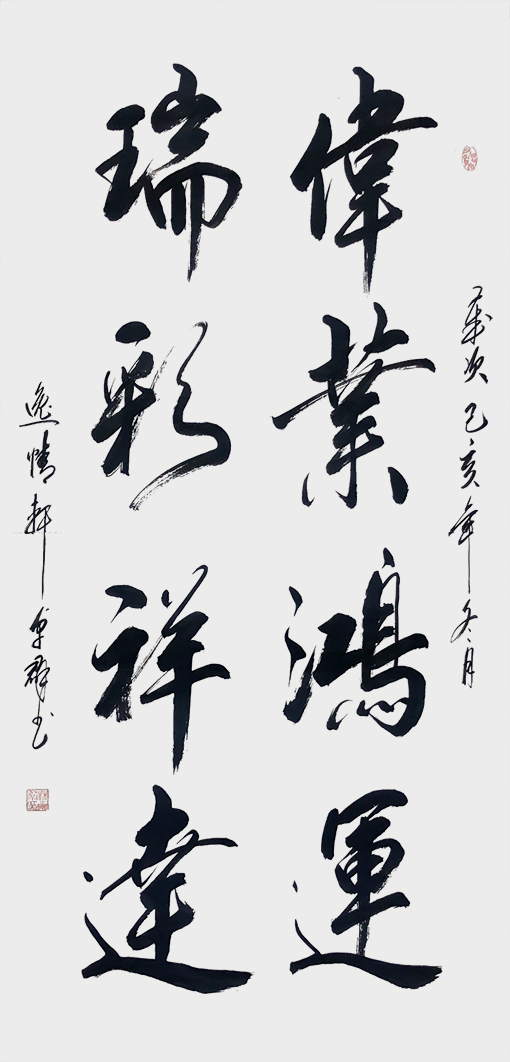 歲次己亥年冬月
偉業鴻運
瑞彩祥達
逸情軒卓群书